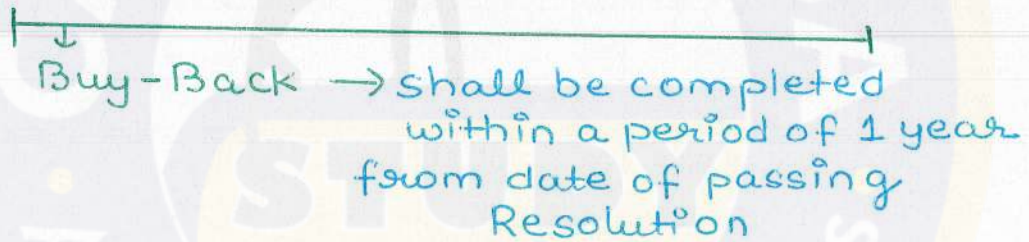 Buy-Back → shall be completed
within a period of 1 year
from date of passing
Resolution
STUDY